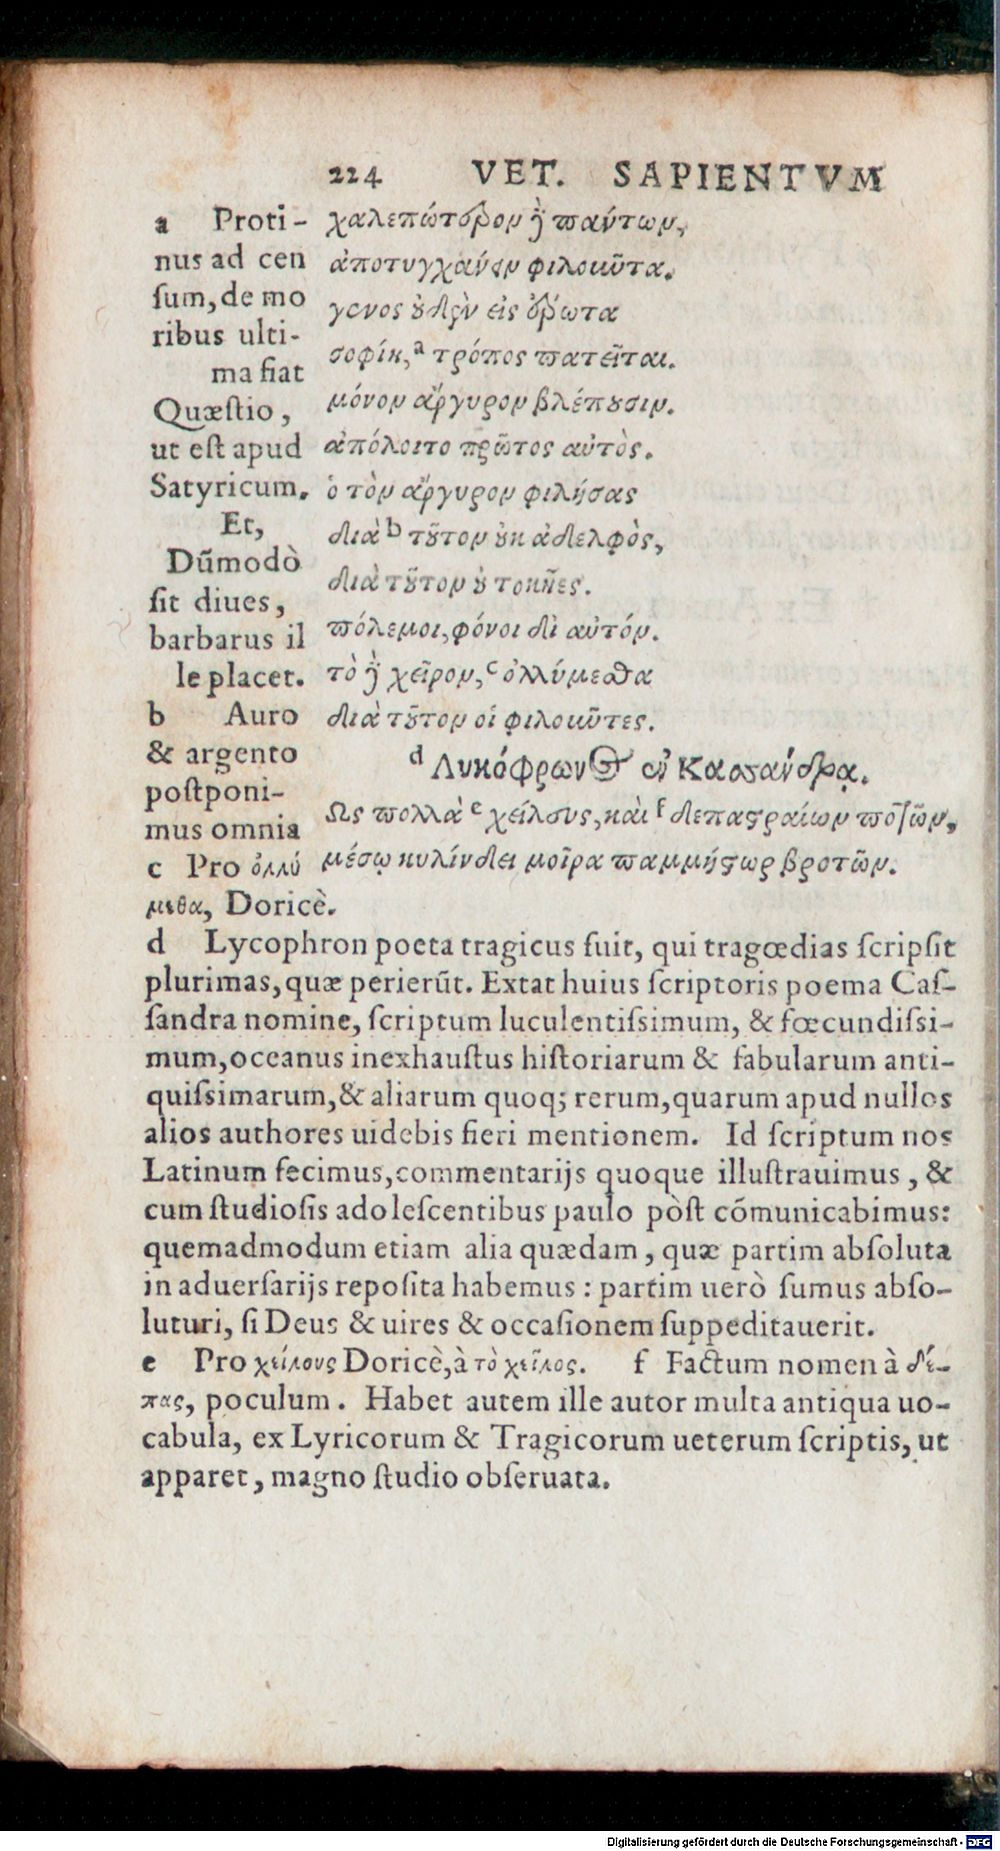 224 VET. SAPIENTVM
a Proti-
nus ad cen
ſum, de mo
ribus ulti-
ma fiat
Quæſtio,
ut eſt apud
Satyricum.
Et,
Dũmodò
ſit diues,
barbarus il
le placet.
b Auro
& argento
poſtponi-
mus omnia
c Pro ὀλλύ
μεθα, Doricè.
χαλεπώτερον δὲ πάντων,
ἀποτυγχάνειν φιλοῦντα.
γένος οὐδὲν εἰς ἔρωτα
σοφίη,ᵃ τρόπος πατεῖται.
μόνον ἄργυρον βλέπουσιν.
ἀπόλοιτο πρῶτος αὐτὸς.
ὁ τὸν ἄργυρον φιλήσας
διὰᵇ τοῦτον οὐκ ἀδελφὸς,
διὰ τοῦτον οὐ τοκῆες.
πόλεμοι, φόνοι δι αὐτόν.
τὸ δὲ χεῖρον,ᶜ ὀλλύμεσθα
διὰ τοῦτον οἱ φιλοῦντες.
ᵈ Λυκόφρων ἐν Κασσάνδρᾳ.
Ως πολλὰ ᵉ χείλευς, καὶ ᶠ δεπαστραίων ποτῶν,
μέσῳ κυλίνδει μοῖρα παμμήστωρ βροτῶν.
d Lycophron poeta tragicus fuit, qui tragœdias ſcripſit
plurimas, quæ perierũt. Extat huius ſcriptoris poema Caſ-
ſandra nomine, ſcriptum luculentiſsimum, & fœcundiſsi-
mum, oceanus inexhauſtus hiſtoriarum & fabularum anti-
quiſsimarum, & aliarum quoq; rerum, quarum apud nullos
alios authores uidebis fieri mentionem. Id ſcriptum nos
Latinum fecimus, commentarijs quoque illuſtrauimus, &
cum ſtudioſis adoleſcentibus paulo pòſt cõmunicabimus:
quemadmodum etiam alia quædam, quæ partim abſoluta
in aduerſarijs repoſita habemus: partim uerò ſumus abſo-
luturi, ſi Deus & uires & occaſionem ſuppeditauerit.
e Pro χείλους Doricè, à τὸ χεῖλος. f Factum nomen à δέ-
πας, poculum. Habet autem ille autor multa antiqua uo-
cabula, ex Lyricorum & Tragicorum ueterum ſcriptis, ut
apparet, magno ſtudio obſeruata.
Digitalisierung gefördert durch die Deutsche Forschungsgemeinschaft - DFG